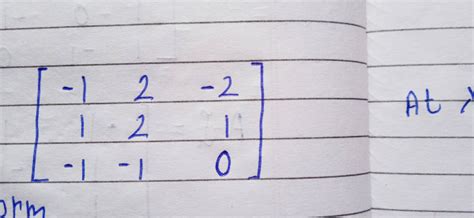 -1 2 -2
1 2 1
-1 -1 0
At
orm